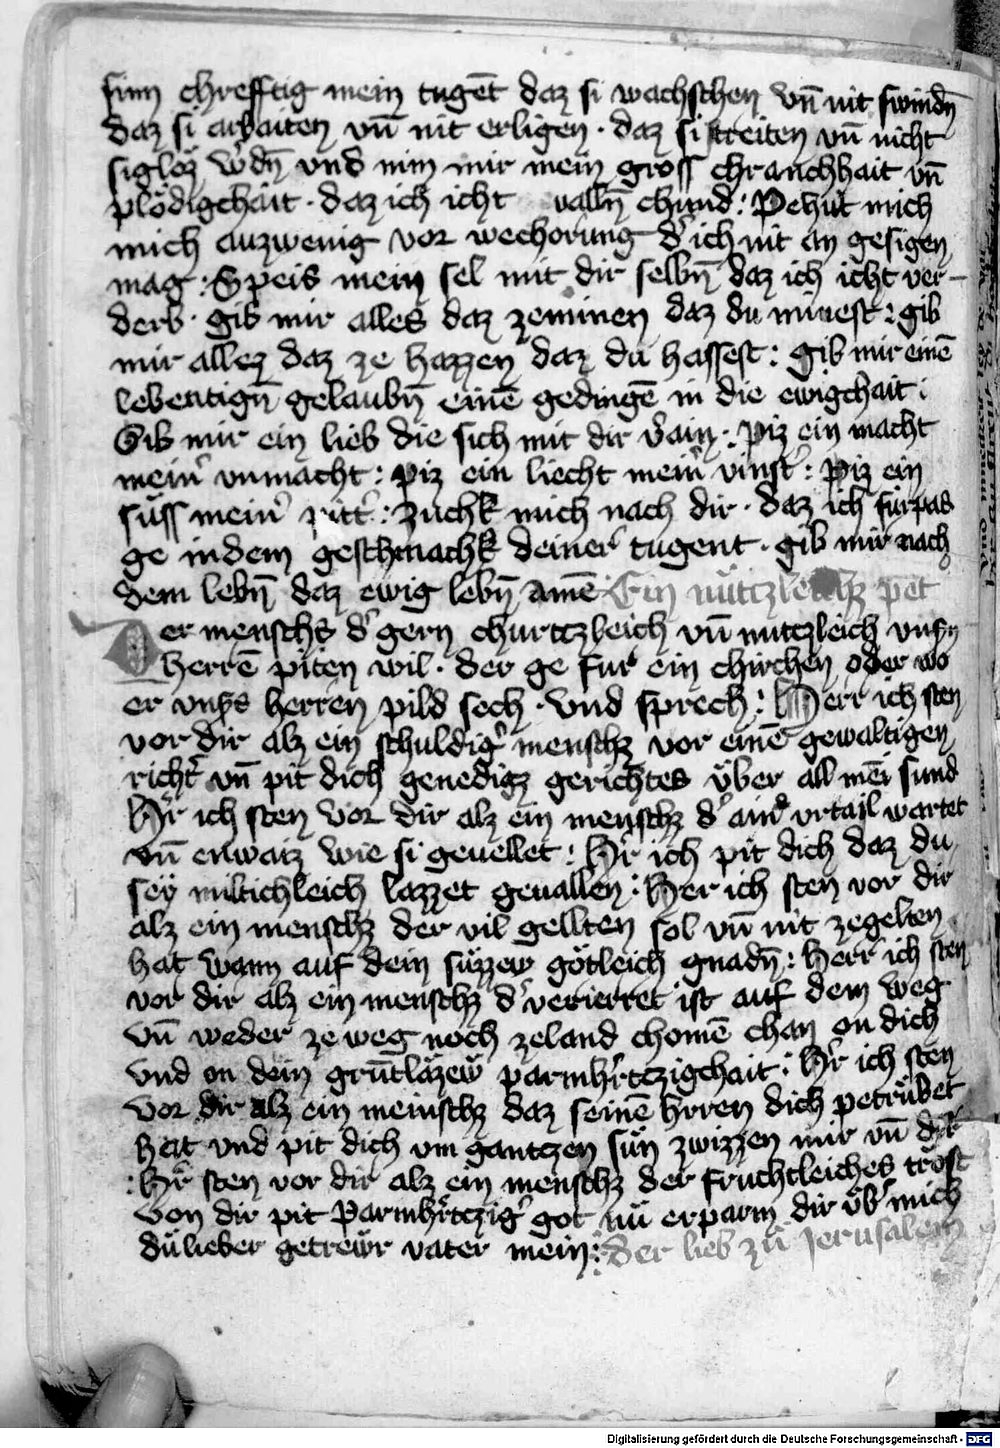 sinn chrefftig mein tugēt daz si wachschen vn̄ nit swindn̄
daz si arbaiten vn̄ nit erligen · daz si streiten vn̄ nicht
sigloz w'dn̄ vnd nim mir mein gross chranchhait vn̄
plödigchait · daz ich icht valln̄ chund : Pehüt mich
mich auzwenig vor wechorung d' ich nit an gesigen
mag : Speis mein sel mit dir selbn̄ daz ich icht ver-
derb · gib mir alles daz zeminen daz du minest : gib
mir allez daz ze hazzen daz du hassest : gib mir einē
lebentign̄ gelaubn̄ einē gedingē in die ewigchait :
Gib mir ein lieb die sich mit dir v'ain : piz ein macht
mein' vnmacht : piz ein liecht mein' vinst' : Piz ein
süss mein' pitt' : zuchk mich nach dir · daz ich fürpas
ge in dem geschmachk deiner tugent · gib mir nach
dem lebn̄ daz ewig lebn̄ Amē : Ein nützleichz pet
Der menschs d' gern churtzleich vn̄ nutzleich vnsn̄
herrē piten wil · der ge für ein chirchen oder wo
er vnss herren pild sech · vnd sprech : Herr ich sten
vor dir alz ein schuldig' menschz vor einē gewaltigen
richt' vn̄ pit dich genedigz gerichtes über all mēi sund
H'r ich sten vor dir alz ein menschz d' ain' vrtail wartet
vn̄ enwaiz wie si geuellet : H'r ich pit dich daz du
sey miltichleich lazzet geuallen : Her ich sten vor dir
alz ein menschz der vil gellten sol vn̄ nit zegelten
hat wann auf dein süzzew götleich gnadn̄ : Herr ich sten
vor dir alz ein menschz d' verierret ist auf dem weg
vn̄ weder ze weg noch zeland chomē chan on dich
vnd on dein grūtläzew parmh'tzigchait : H'r ich sten
vor dir alz ein meinschz daz seinē hrren dich petrübet
hat vnd pit dich vm gantzen sün zwizzen mir vn̄ dir
: H'r sten vor dir alz ein menschz der fruchtleiches tröst
von dir pit Parmh'tzig' got nu erparm dir üb' mich
du lieber getrewr vater mein : der lieb zu Jerusalem
Digitalisierung gefördert durch die Deutsche Forschungsgemeinschaft - DFG